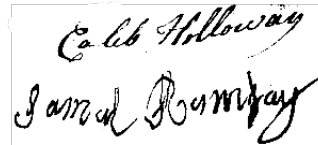 Caleb Holloway
Samuel Rumsay